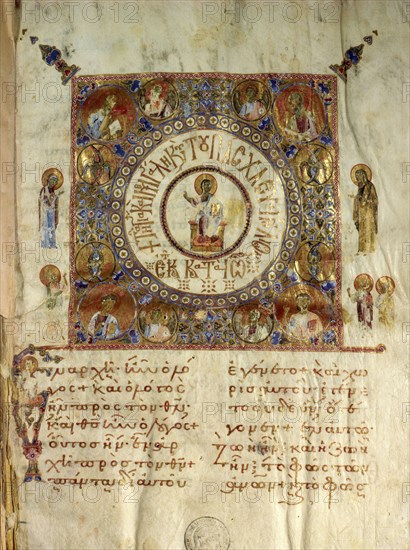 ΤΟΥ ΠΑΣΧΑ
ΕΚ ΤΟΥ ΚΑΤΑ ΙΩ
Ἐν ἀρχῇ ἦν ὁ λό
γος· καὶ ὁ λόγος
ἦν πρὸς τὸν θν·
καὶ θς ἦν ὁ λόγος·
οὗτος ἦν ἐν ἀρ
χῇ πρὸς τὸν θν·
πάντα δι' αὐτοῦ
ἐγένετο· καὶ χω
ρὶς αὐτοῦ ἐγένε
το οὐδὲ ἓν ὃ γέ
γονεν· ἐν αὐτῷ
ζωὴ ἦν· καὶ ἡ ζωὴ
ἦν τὸ φῶς τῶν
ἀνων· καὶ τὸ φῶς